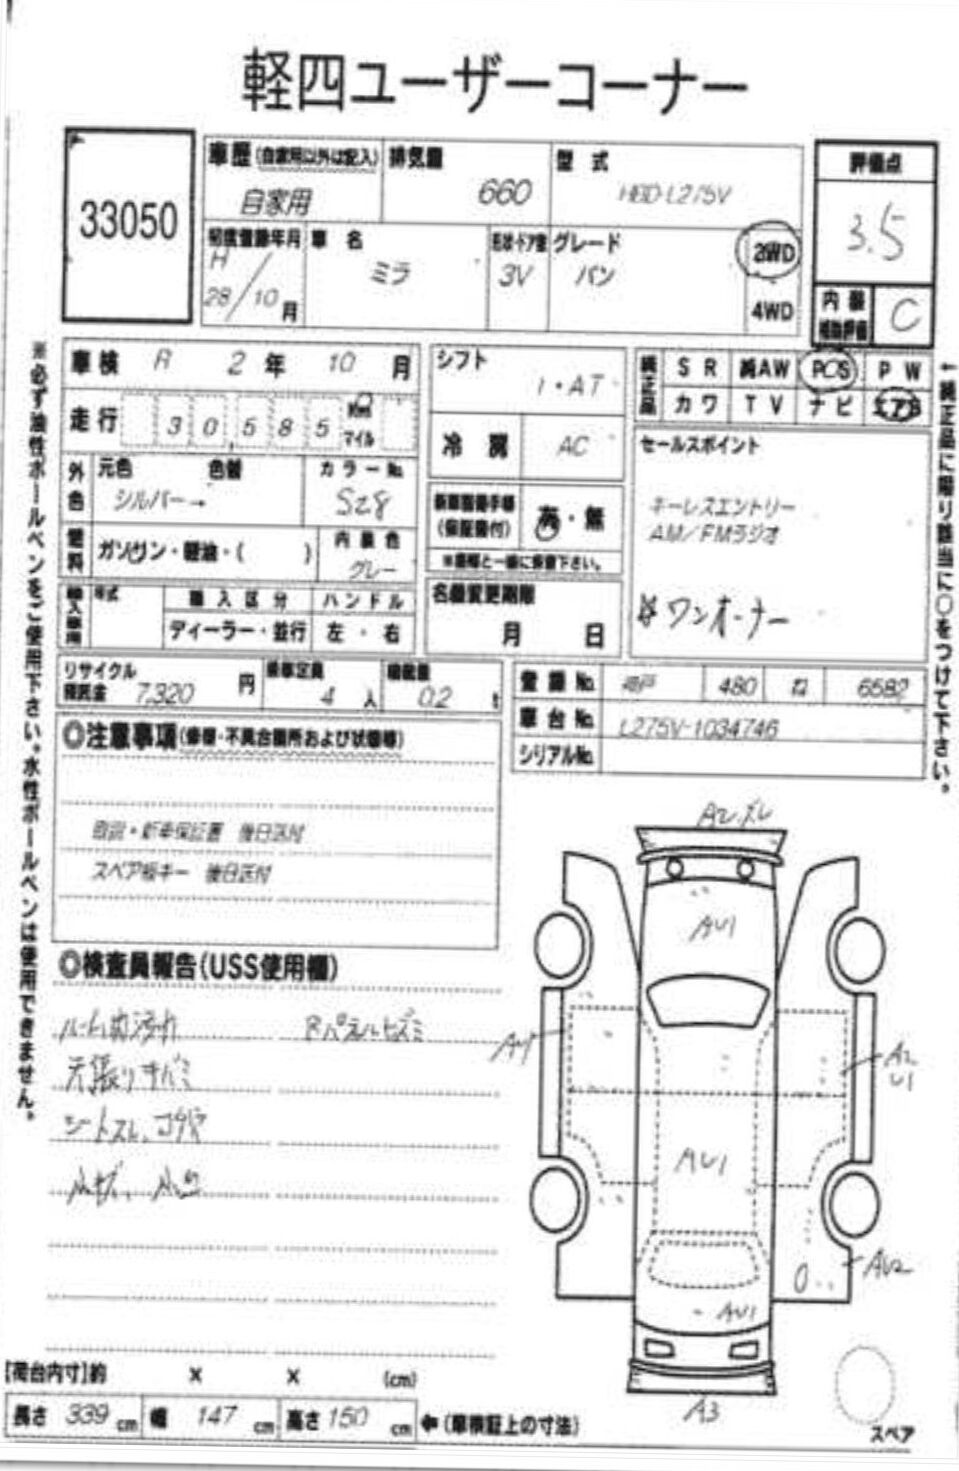 軽四ユーザーコーナー
33050
車歴(自家用以外は記入)
自家用
排気量
660
型式
HBD-L275V
評価点
3.5
初度登録年月
H
28/10月
車名
ミラ
形状・ドア数
3V
グレード
バン
2WD
4WD
内装
補助評価
C
車検 R 2年 10月
走行 30585 Km マイル
外色
元色
シルバー→
色替
カラーNo.
S28
燃料
ガソリン・軽油・( )
内装色
グレー
輸入車用
年式
輸入区分
ディーラー・並行
ハンドル
左・右
シフト
I・AT
冷房
AC
新車整備手帳
(保証書付)
有・無
※書類と一緒に保管下さい。
名義変更期限
月 日
純正品
SR 純AW PS PW
カワ TV ナビ エアB
セールスポイント
キーレスエントリー
AM/FMラジオ
☆ワンオーナー
リサイクル
預託金 7,320 円
乗車定員
4人
積載量
0.2 t
登録No. 神戸 480 6582
車台No. L275V-1034746
シリアルNo.
◎注意事項(修復・不具合箇所および状態等)
取説・新車保証書 後日送付
スペア板キー 後日送付
◎検査員報告(USS使用欄)
ルーム内汚れ
Rパネルヒズミ
天張りキバミ
シートスレ、コゲ穴
A2.ズレ
AU1
A4
A2
U1
AU1
AU2
AU1
A3
スペア
【荷台内寸】約 × × (cm)
長さ 339 cm 幅 147 cm 高さ 150 cm ←(車検証上の寸法)
※必ず油性ボールペンをご使用下さい。水性ボールペンは使用できません。
←純正品に限り該当に○をつけて下さい。